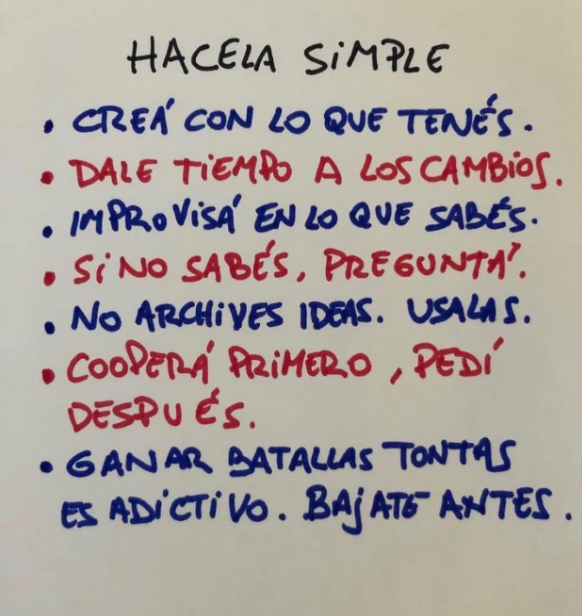 HACELA SIMPLE
• CREÁ CON LO QUE TENÉS.
• DALE TIEMPO A LOS CAMBIOS.
• IMPROVISÁ EN LO QUE SABÉS.
• SI NO SABÉS, PREGUNTÁ.
• NO ARCHIVES IDEAS. USALAS.
• COOPERÁ PRIMERO, PEDÍ
DESPUÉS.
• GANAR BATALLAS TONTAS
ES ADICTIVO. BAJATE ANTES.